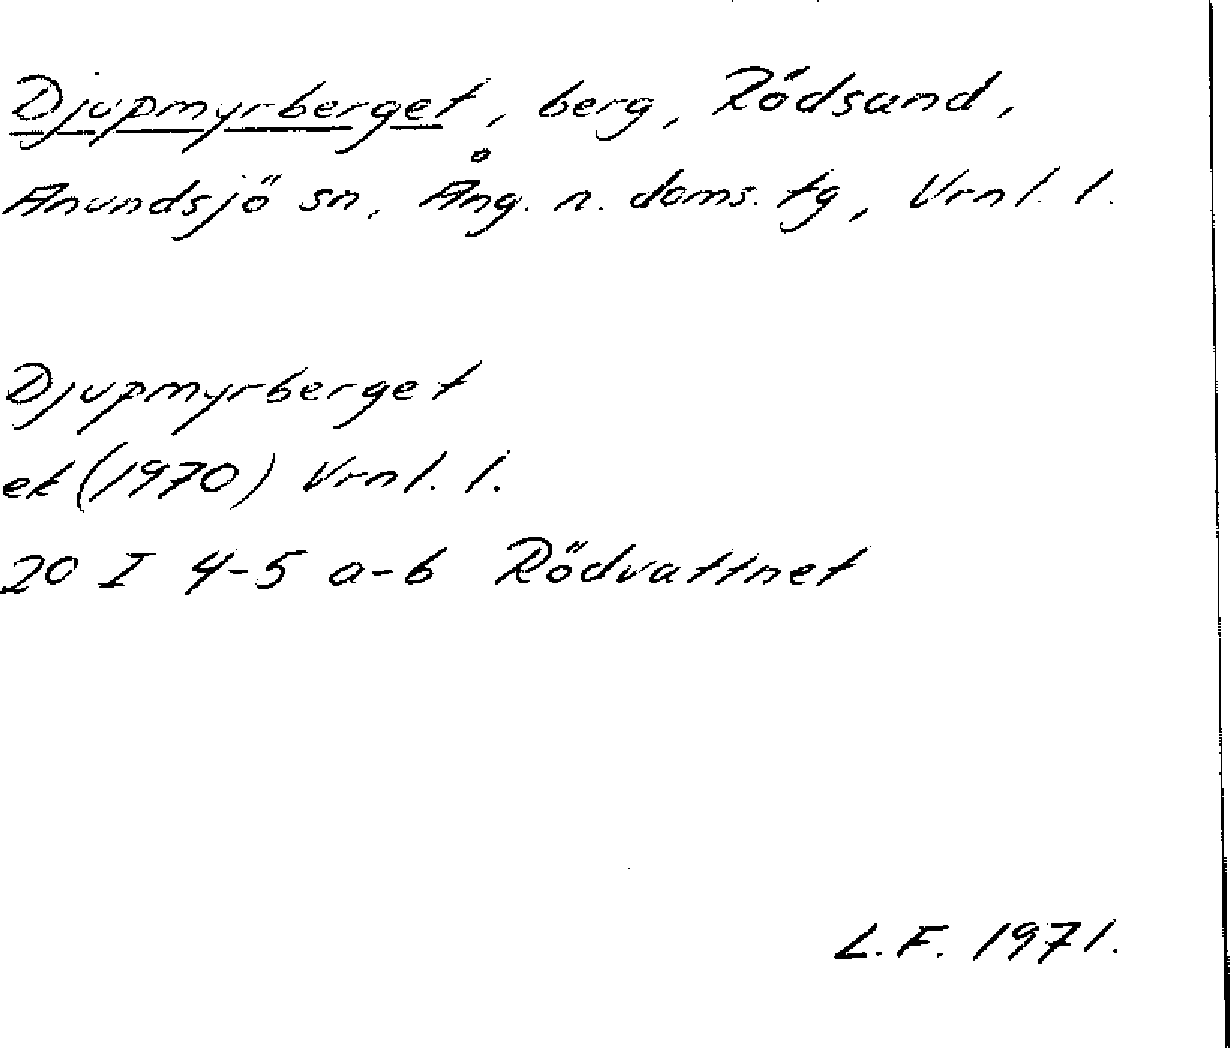 Djupmyrberget, berg, Rödsand,
Anundsjö sn, Ång. n. doms. tg, Vrnl. l.
Djupmyrberget
ek (1970) Vrnl. l.
20 I 4-5 a-b Rödvattnet
L.F. 1971.